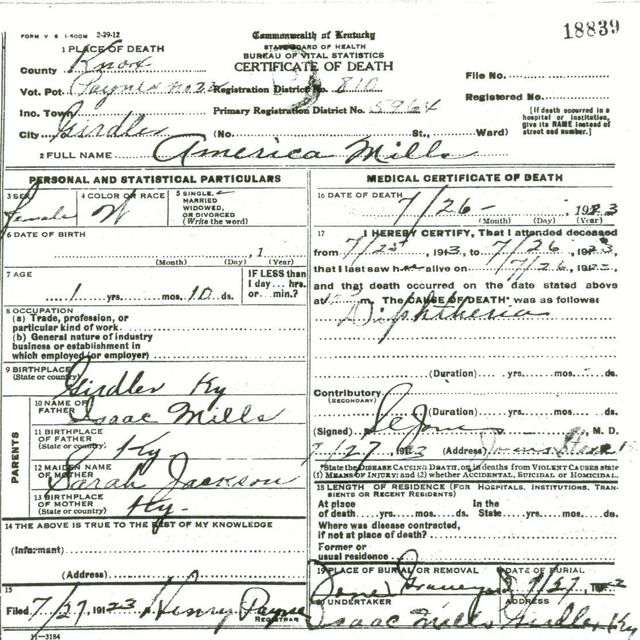 FORM V S 1-500M 2-29-12
Commonwealth of Kentucky
18839
STATE BOARD OF HEALTH
BUREAU OF VITAL STATISTICS
CERTIFICATE OF DEATH
1 PLACE OF DEATH
County Knox
Vot. Pct Payne
Registration District No. 810
File No.
Inc. Town
Primary Registration District No. 5964
Registered No.
City Girdler (No St., Ward)
[If death occurred in a hospital or institution, give its NAME instead of street and number.]
2 FULL NAME America Mills
PERSONAL AND STATISTICAL PARTICULARS
3 SEX Female
4 COLOR OR RACE W
5 SINGLE, MARRIED WIDOWED, OR DIVORCED (Write the word)
6 DATE OF BIRTH
, 1
(Month) (Day) (Year)
7 AGE
1 yrs. mos. 10 ds.
IF LESS than 1 day hrs. or min.?
8 OCCUPATION
(a) Trade, profession, or particular kind of work
(b) General nature of industry business or establishment in which employed (or employer)
9 BIRTHPLACE (State or country) Girdler Ky
PARENTS
10 NAME OF FATHER Isaac Mills
11 BIRTHPLACE OF FATHER (State or country) Ky.
12 MAIDEN NAME OF MOTHER Sarah Jackson
13 BIRTHPLACE OF MOTHER (State or country) Ky-
14 THE ABOVE IS TRUE TO THE BEST OF MY KNOWLEDGE
(Informant)
(Address)
15
Filed 7/27, 191 23 Henry Payne
REGISTRAR
11-3184
MEDICAL CERTIFICATE OF DEATH
16 DATE OF DEATH
7/26- , 1923
(Month) (Day) (Year)
17 I HEREBY CERTIFY, That I attended deceased
from 7/25, 1913, to 7/26, 1923,
that I last saw h alive on 7/26, 1923,
and that death occurred on the date stated above
at m. The CAUSE OF DEATH* was as follows:
Diphtheria
(Duration) yrs. mos. ds.
Contributory
(SECONDARY)
(Duration) yrs. mos. ds.
(Signed) M. D.
7/27 1913 (Address)
*State the DISEASE CAUSING DEATH, or, in deaths from VIOLENT CAUSES state
(1) MEANS OF INJURY and (2) whether ACCIDENTAL, SUICIDAL or HOMICIDAL.
18 LENGTH OF RESIDENCE (FOR HOSPITALS, INSTITUTIONS, TRANSIENTS OR RECENT RESIDENTS)
At place of death yrs. mos. ds. In the State yrs. mos. ds.
Where was disease contracted, if not at place of death?
Former or usual residence
19 PLACE OF BURIAL OR REMOVAL
Graveyard
DATE OF BURIAL
7/27, 192
20 UNDERTAKER
Isaac Mills
ADDRESS
Girdler Ky